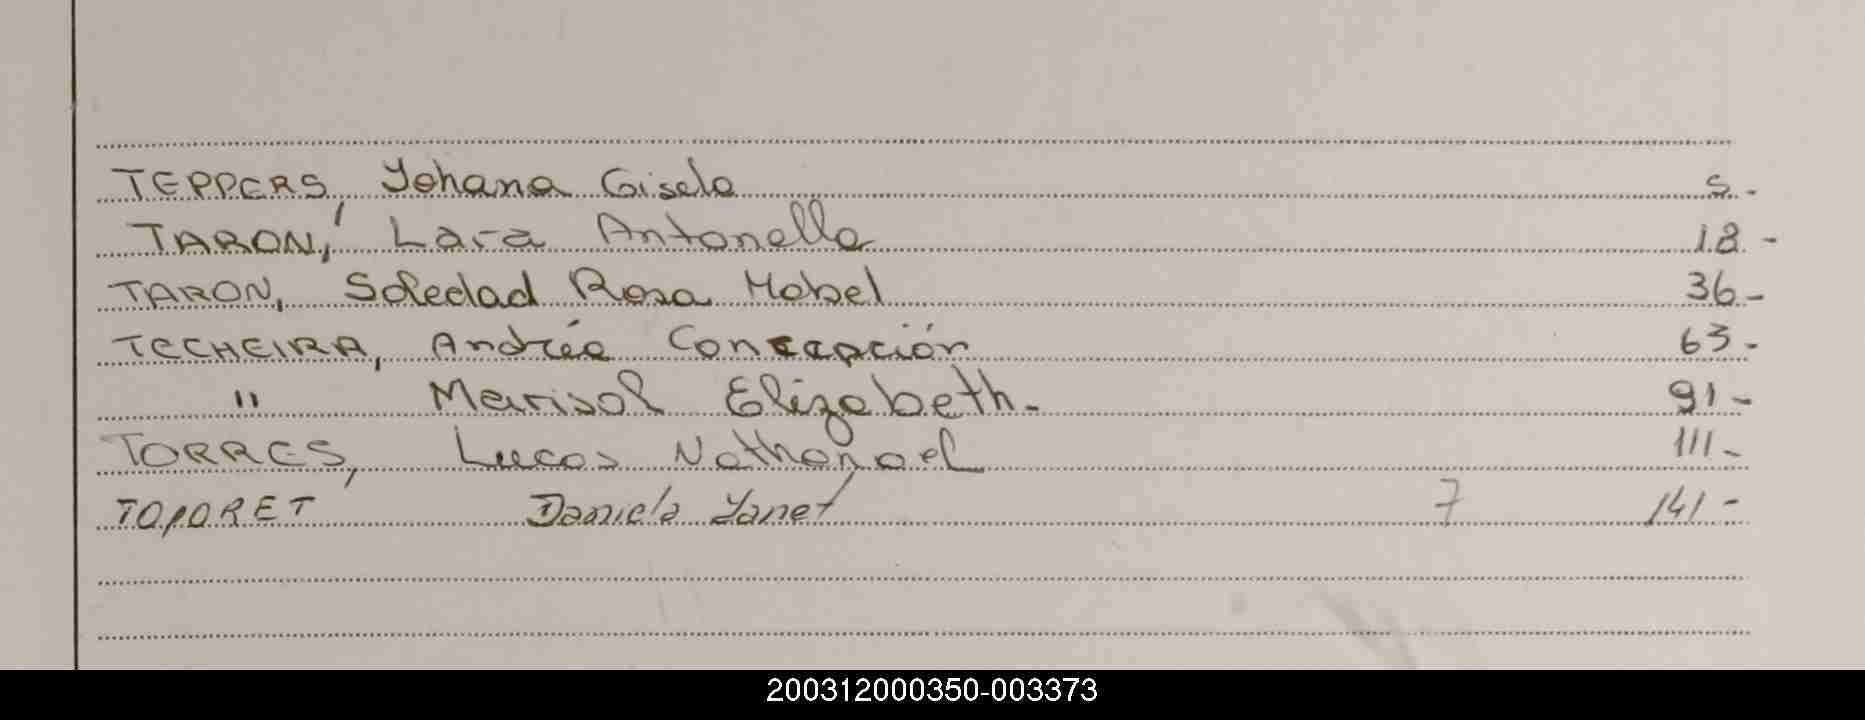 TEPPERS, Yohana Gisela 5.-
TARON, Lara Antonella 18.-
TARON, Soledad Rosa Mabel 36.-
TECHEIRA, Andréa Concepción 63.-
" Marisol Elizabeth.- 91.-
TORRES, Lucas Nathanael 111.-
TOPORET Daniela Yanet 7 141.-
200312000350-003373